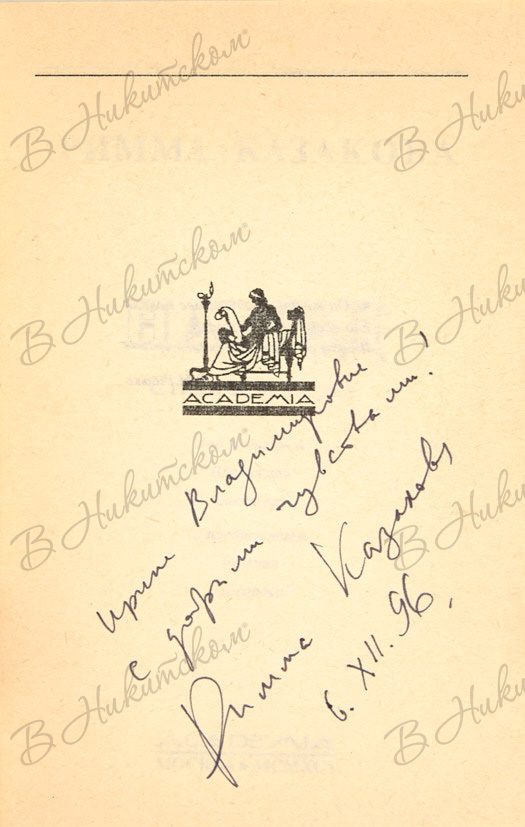 ACADEMIA
Ирине Владимировне
с добрыми чувствами!
Римма Казакова
6. XII. 96.
В Никитском
В Никитском
В Никитском
В Никитском
В Никитском
В Никитском
В Никитском
В Никитском